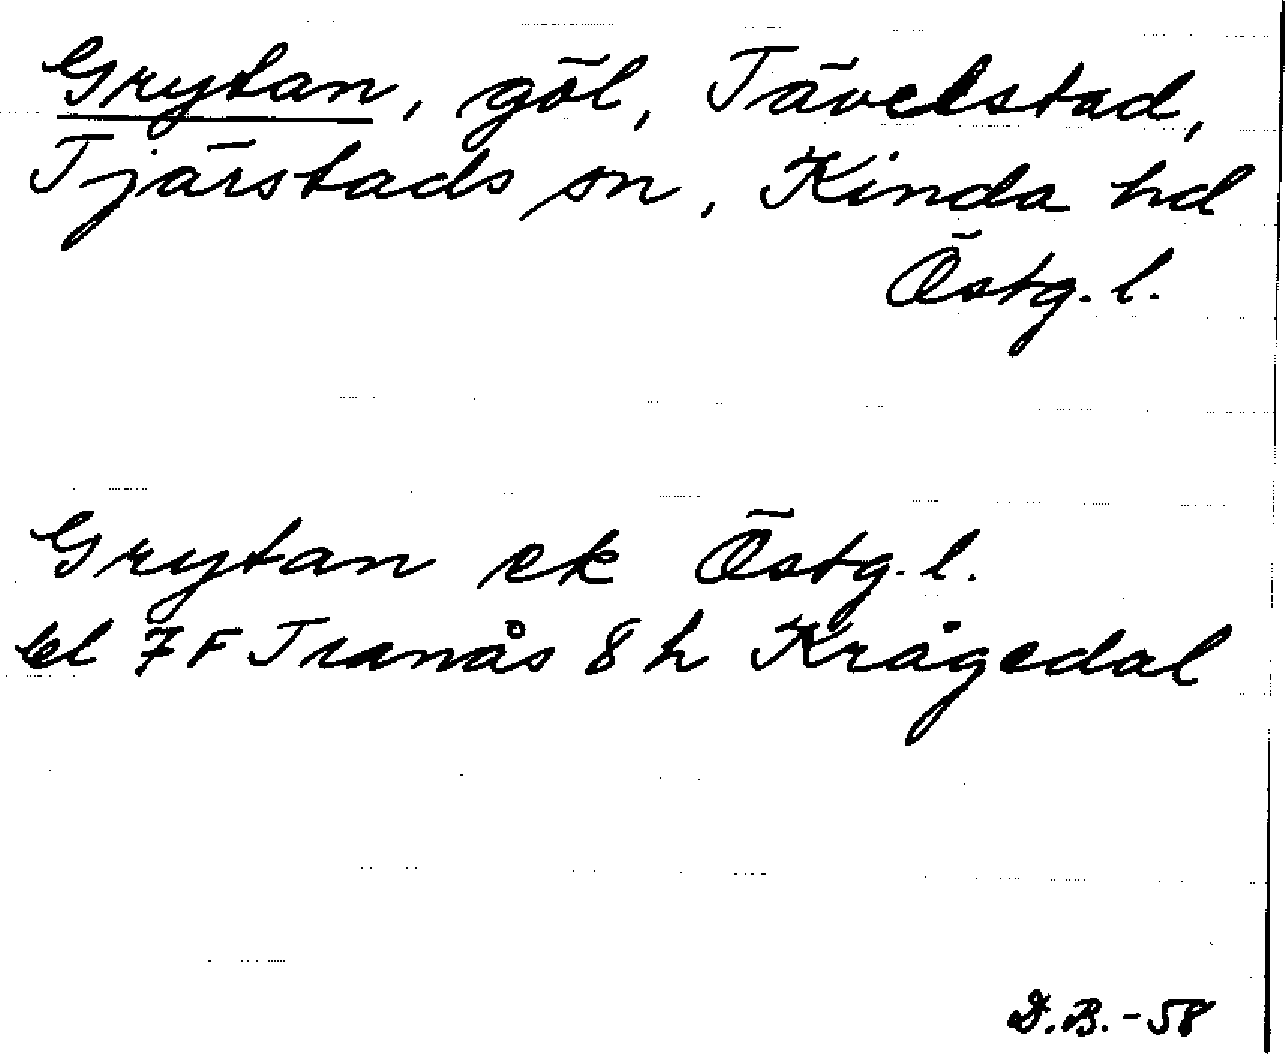 Grytan, göl, Tävelstad,
Tjärstads sn, Kinda hd
Östg. l.
Grytan ek Östg. l.
bl 7 F Tranås 8 h Krågedal
D.B. - 58